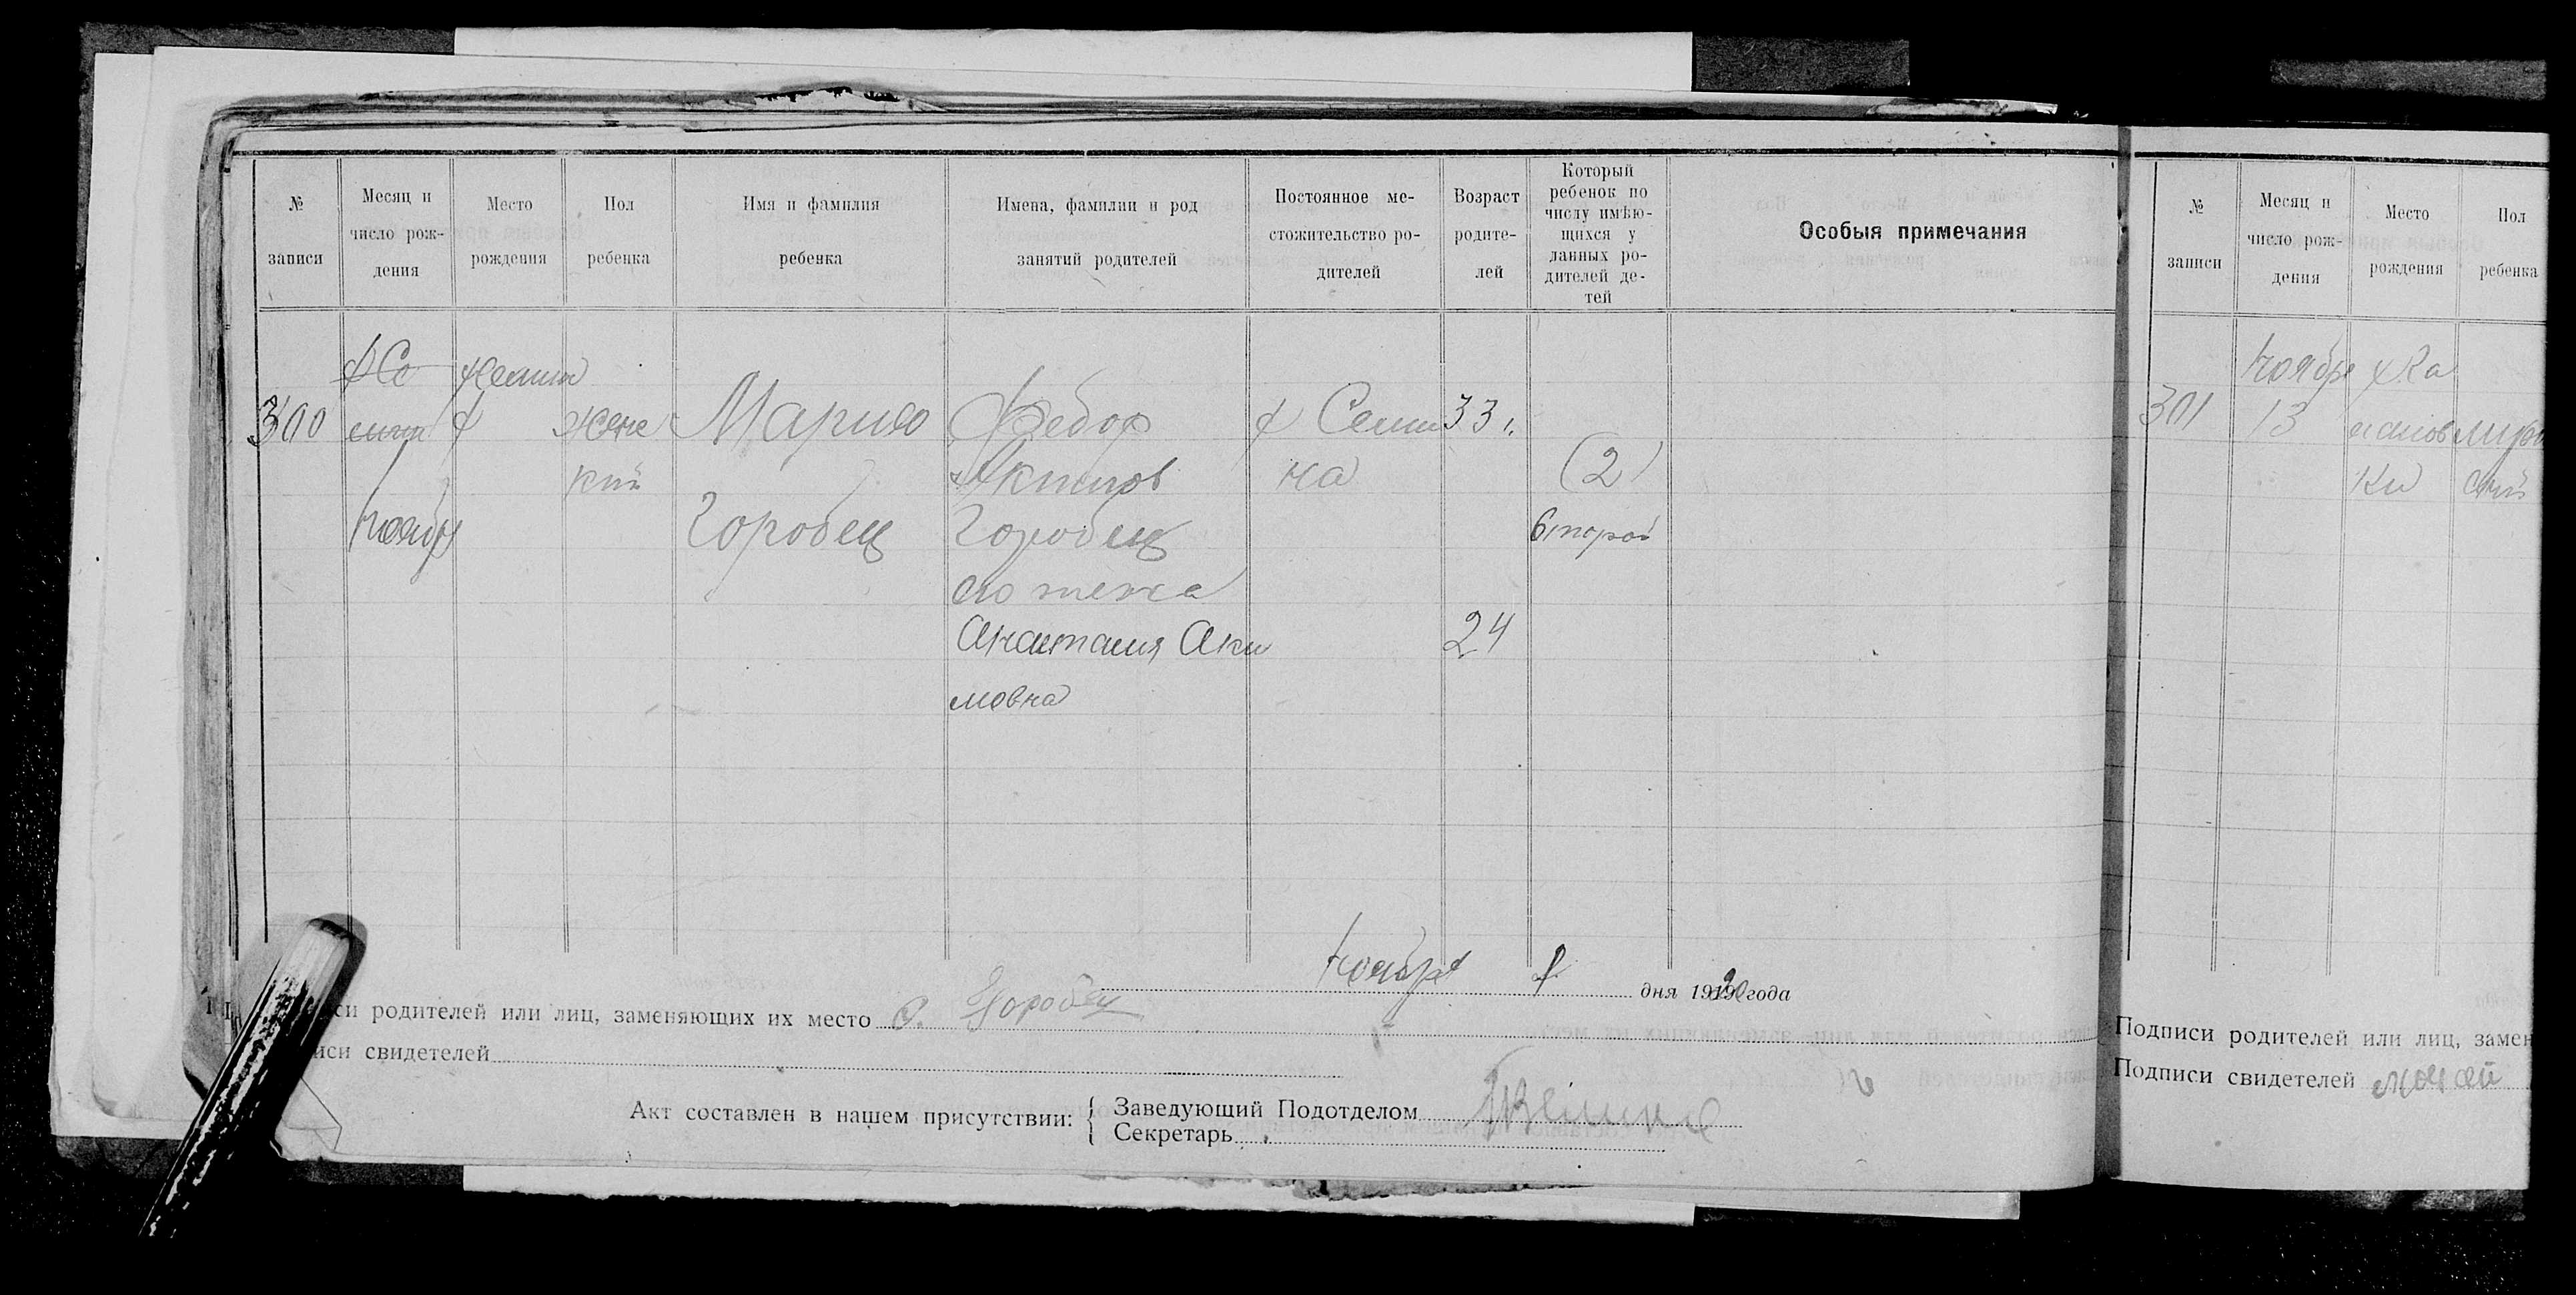 № записи
Месяц и число рождения
Место рождения
Пол ребенка
Имя и фамилия ребенка
Имена, фамилии и род занятий родителей
Постоянное местожительство родителей
Возраст родителей
Который ребенок по числу имѣющихся у данных родителей детей
Особыя примечания
300
женс
кий
Мария
Горобец
Федор
Горобец
его жена
Анастасия Аки
мовна
х Семи
на
33 г.
24
(2)
второй
Ноября
дня 1919 года
си родителей или лиц, заменяющих их место Ф. Горобец
иси свидетелей
Акт составлен в нашем присутствии:
Заведующий Подотделом
Секретарь
№ записи
Месяц и число рождения
Место рождения
Пол ребенка
301
Ноября
13
Подписи родителей или лиц, замен
Подписи свидетелей